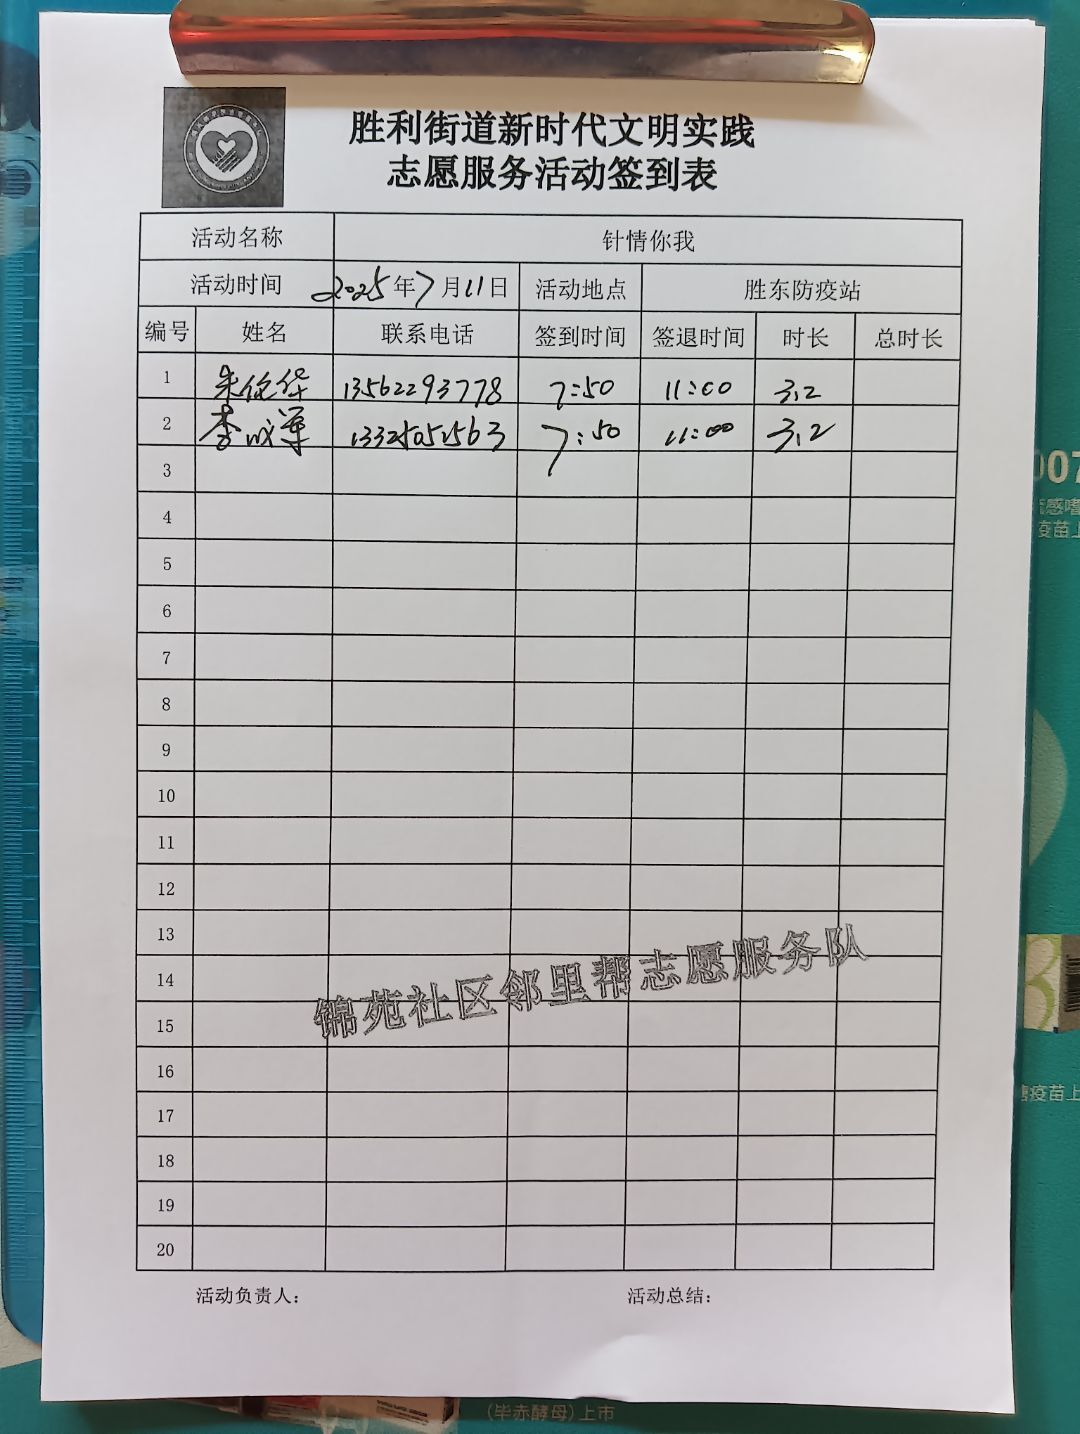 胜利街道新时代文明实践
志愿服务活动签到表
活动名称 针情你我
活动时间 2025年7月11日 活动地点 胜东防疫站
编号 姓名 联系电话 签到时间 签退时间 时长 总时长
1 朱 华 13562293778 7:50 11:00 3.2
2 李成军 13325051563 7:50 11:00 3.2
3
4
5
6
7
8
9
10
11
12
13
14
15
16
17
18
19
20
锦苑社区邻里帮志愿服务队
活动负责人: 活动总结:
007
疫苗上
疫苗上
(毕赤酵母)上市